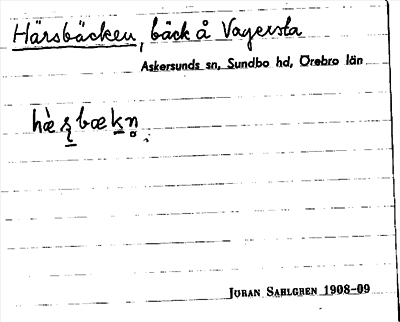 Härsbäcken, bäck å Vagersta
Askersunds sn, Sundbo hd, Örebro län
JÖRAN SAHLGREN 1908-09